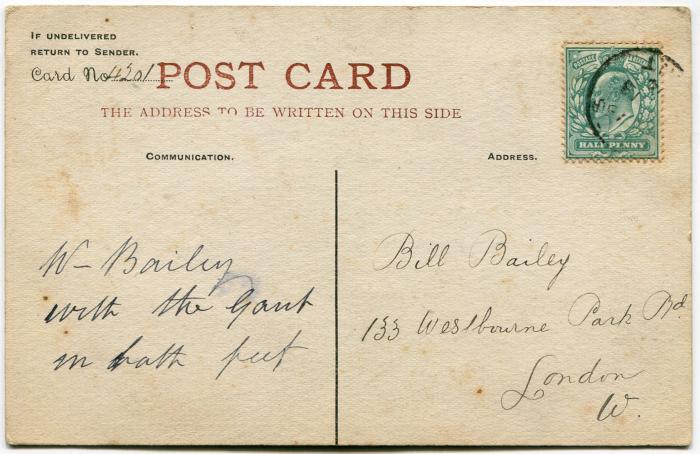 IF UNDELIVERED
RETURN TO SENDER.
Card No 4201
POST CARD
THE ADDRESS TO BE WRITTEN ON THIS SIDE
POSTAGE
HALFPENNY
COMMUNICATION.
ADDRESS.
W— Bailey
with the Gout
in both feet
Bill Bailey
133 Westbourne Park Rd.
London
W.